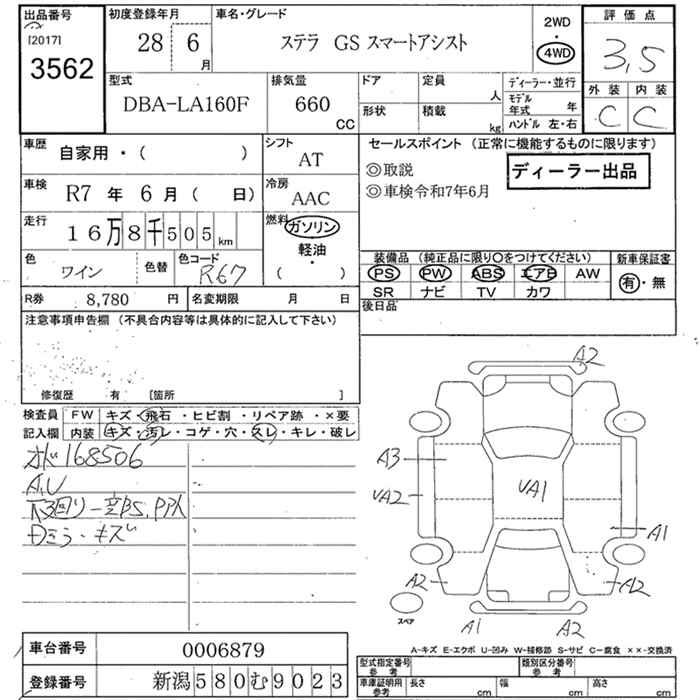 出品番号 初度登録年月 車名・グレード 2WD 評価点
[2017] 28 6 月 ステラ GS スマートアシスト ・ 3,5
3562 4WD
外装 内装
C C
型式 排気量 ドア 定員 人 ディーラー・並行
DBA-LA160F 660 CC 形状 積載 kg モデル年式 年
ハンドル 左・右
車歴 自家用・( ) シフト AT セールスポイント (正常に機能するものに限ります)
◎取説 ディーラー出品
車検 R7 年 6 月 ( 日) 冷房 AAC ◎車検令和7年6月
走行 16万8千505km 燃料 ガソリン
軽油・
( )
色 ワイン 色替 色コード R67 装備品 (純正品に限り○をつけてください) 新車保証書
PS PW ABS エアB AW 有・無
R券 8,780 円 名変期限 月 日 SR ナビ TV カワ
注意事項申告欄 (不具合内容等は具体的に記入して下さい) 後日品
修復歴 有 [箇所 ]
検査員 FW キズ・飛石・ヒビ割・リペア跡・×要
記入欄 内装 キズ・汚レ・コゲ・穴・スレ・キレ・破レ
オド168506
A,U
下廻り一
キズ
A2
A3
UA2
UA1
A1
A2
A2
A1
A2
スペア
A-キズ E-エクボ U-凹み W-補修跡 S-サビ C-腐食 ××-交換済
車台番号 0006879
型式指定番号 参考 類別区分番号 参考
登録番号 新潟580む9023
車庫証明用 参考 長さ cm 幅 cm 高さ cm